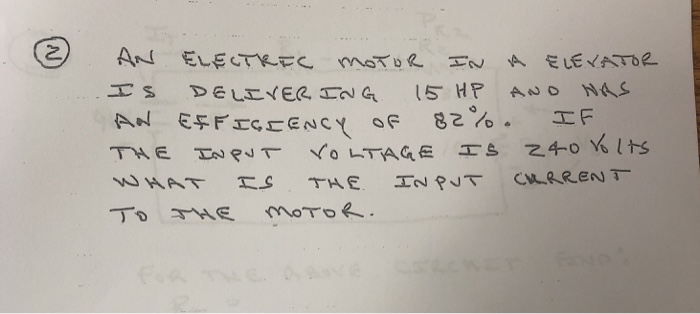 2
AN ELECTRIC MOTOR IN A ELEVATOR
IS DELIVERING 15 HP AND HAS
AN EFFICIENCY OF 82%. IF
THE INPUT VOLTAGE IS 240 VOLTS
WHAT IS THE INPUT CURRENT
TO THE MOTOR.